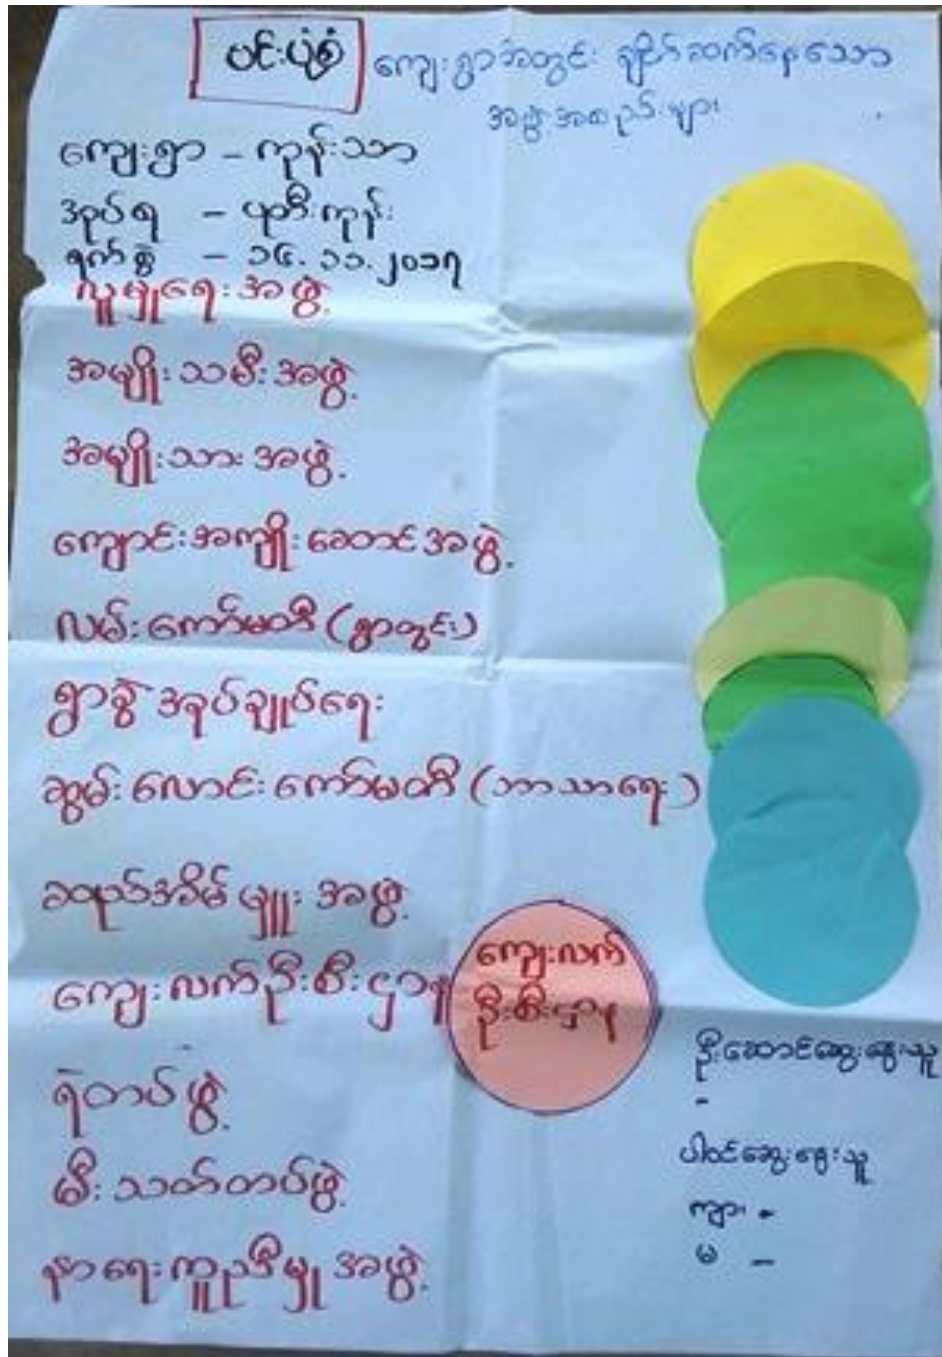 ဗင်းပုံစံ ကျေးရွာအတွင်း ချိတ်ဆက်နေသော
အဖွဲ့အစည်းများ
ကျေးရွာ - ကုန်းသာ
အုပ်စု - ပုတီးကုန်း
ရက်စွဲ - ၁၆.၁၁.၂၀၁၇
လူမှုရေးအဖွဲ့
အမျိုးသမီးအဖွဲ့
အမျိုးသားအဖွဲ့
ကျောင်းအကျိုးဆောင်အဖွဲ့
လမ်းကော်မတီ (ရွာတွင်း)
ရွာခွဲအုပ်ချုပ်ရေး
ဆွမ်းလောင်းကော်မတီ (ဘာသာရေး)
ဆယ်အိမ်မှူးအဖွဲ့
ကျေးလက်ဦးစီးဌာန
ကျေးလက်
ဦးစီးဌာန
ရဲတပ်ဖွဲ့
မီးသတ်တပ်ဖွဲ့
နာရေးကူညီမှုအဖွဲ့
ဦးဆောင်ဆွေးနွေးသူ
-
ပါဝင်ဆွေးနွေးသူ
ကျား -
မ -